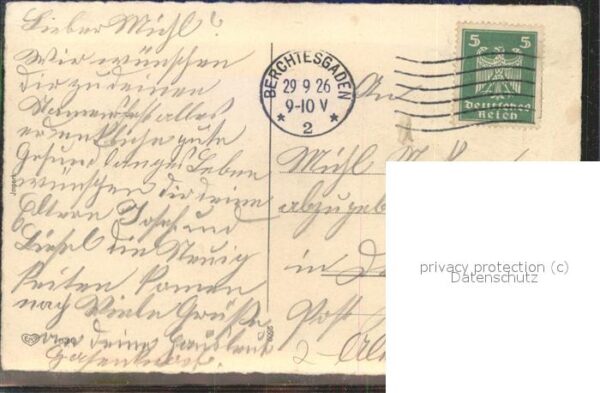 Lieber Michl!
Wir wünschen
dir zu deinen
Namensfest alles
erdenkliche gute
Gesund langes Leben
wünschen dir deine
Eltern Josef und
Liesel die Neuig
keiten komen
nach Viele Grüße
von deine
BERCHTESGADEN
29 9 26
9-10 V
* 2 *
5 5
Deutsches
Reich
An
Michl
abzugeb
in
Post
privacy protection (c)
Datenschutz